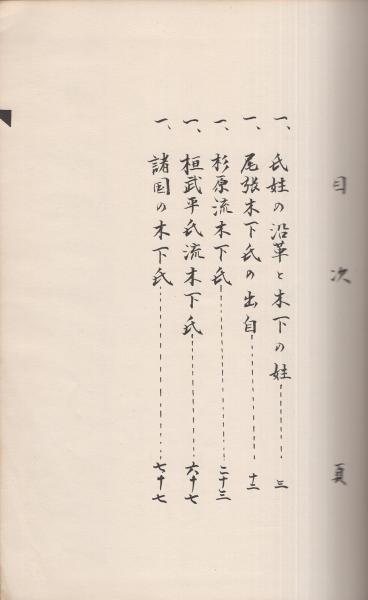 目次 頁
一、氏姓の沿革と木下の姓 三
一、尾張木下氏の出自 十三
一、杉原流木下氏 二十三
一、桓武平氏流木下氏 六十七
一、諸国の木下氏 七十七